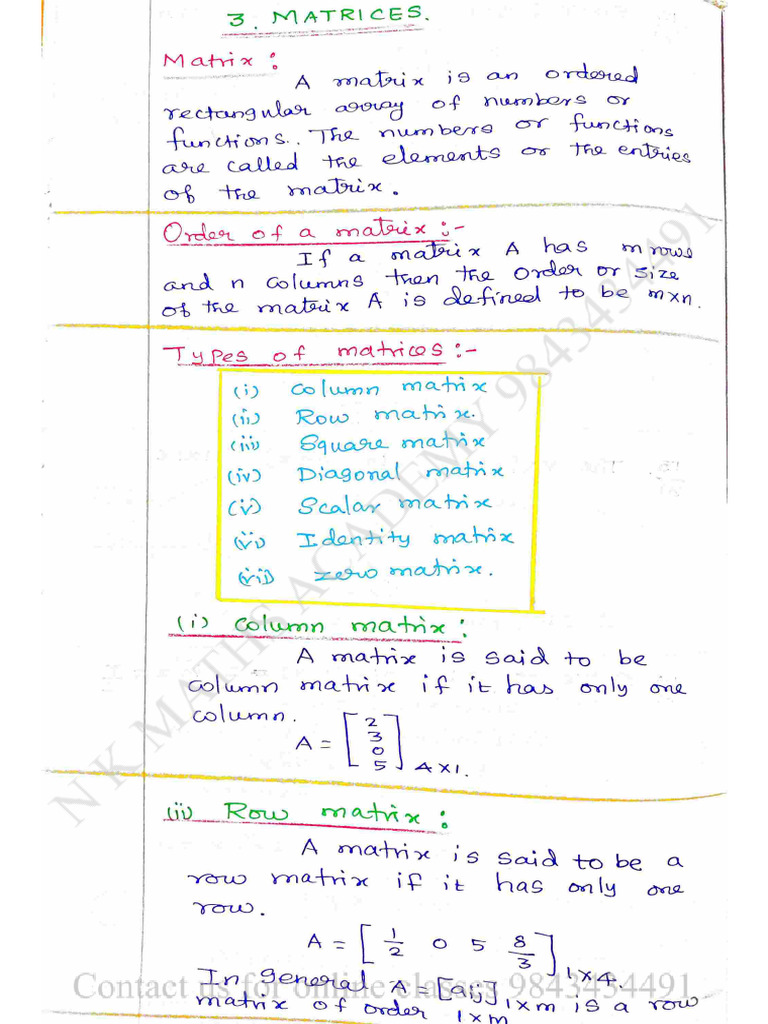 3. MATRICES.
Matrix :
A matrix is an ordered
rectangular array of numbers or
functions.. The numbers or functions
are called the elements or the entries
of the matrix.
Order of a matrix :-
If a matrix A has m rows
and n columns then the order or size
of the matrix A is defined to be m×n.
Types of matrices :-
(i) Column matrix
(ii) Row matrix.
(iii) Square matrix
(iv) Diagonal matrix
(v) Scalar matrix
(vi) Identity matrix
(vii) zero matrix.
(i) column matrix :
A matrix is said to be
column matrix if it has only one
column.
A = [2 3 0 5] 4×1.
(ii) Row matrix :
A matrix is said to be a
row matrix if it has only one
row.
A = [1/2 0 5 8/3] 1×4.
In general A = [aij] 1×m is a row
matrix of order 1×m
N K MATHS ACADEMY 9843434491
Contact us for online classes 9843434491